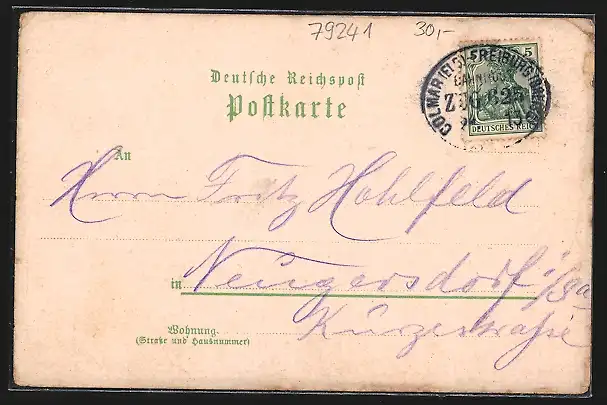 79241 30,-
Deutsche Reichspost
Postkarte
5
DEUTSCHES REICH
COLMAR (ELS)-FREIBURG
BAHNPOST
ZUG 825
An
Herrn Fritz Hohlfeld
in Neugersdorf i/Sa
Kurzestraße
Wohnung
(Straße und Hausnummer)